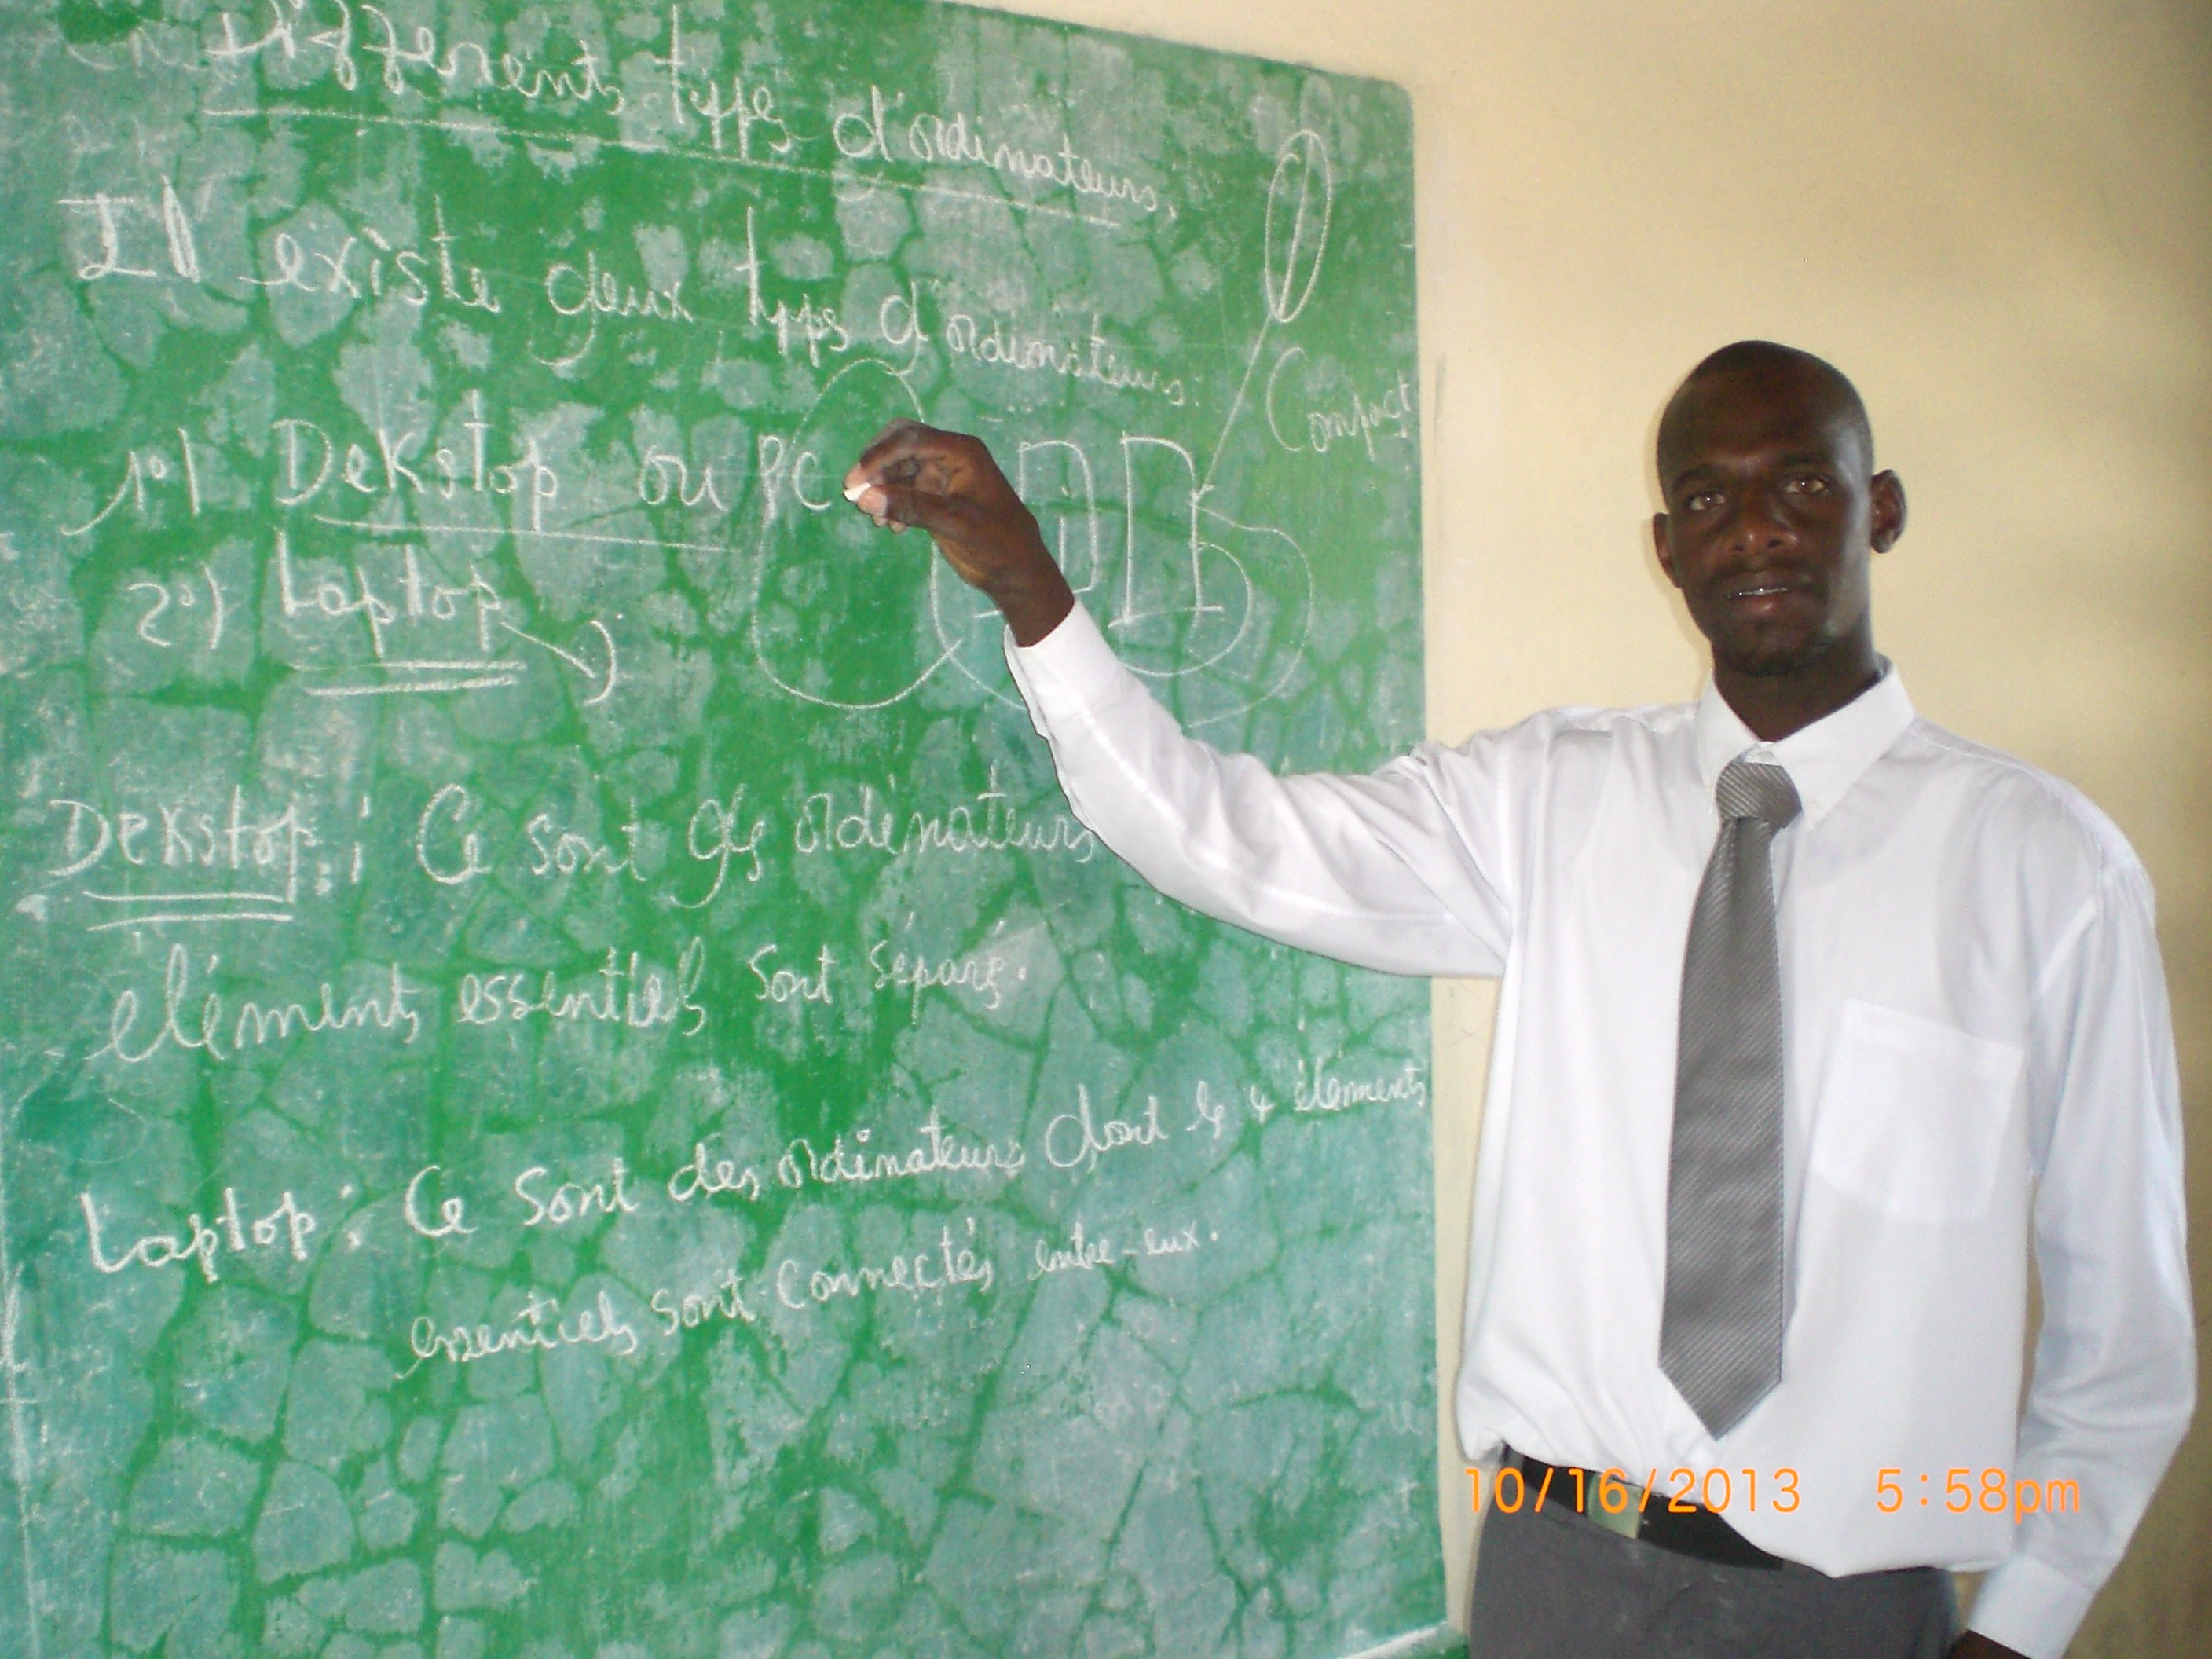 Différents types d'ordinateurs;
Il existe deux types d'ordinateurs:
1º) Dekstop ou PC
Compact
2º) Laptop
Dekstop: Ce sont des ordinateurs
eléments essentiels sont séparés.
Laptop: Ce sont des ordinateurs dont les 4 éléments
essentiels sont connectés entre-eux.
10/16/2013 5:58pm